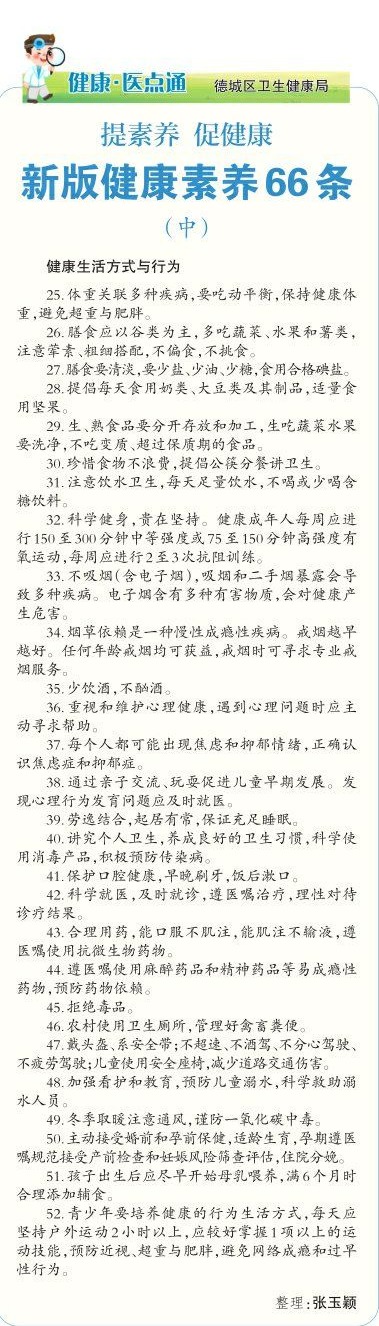 健康·医点通
德城区卫生健康局
提素养 促健康
新版健康素养66条
（中）
健康生活方式与行为
25.体重关联多种疾病,要吃动平衡,保持健康体
重,避免超重与肥胖。
26.膳食应以谷类为主,多吃蔬菜、水果和薯类,
注意荤素、粗细搭配,不偏食,不挑食。
27.膳食要清淡,要少盐、少油、少糖,食用合格碘盐。
28.提倡每天食用奶类、大豆类及其制品,适量食
用坚果。
29.生、熟食品要分开存放和加工,生吃蔬菜水果
要洗净,不吃变质、超过保质期的食品。
30.珍惜食物不浪费,提倡公筷分餐讲卫生。
31.注意饮水卫生,每天足量饮水,不喝或少喝含
糖饮料。
32.科学健身,贵在坚持。健康成年人每周应进
行150至300分钟中等强度或75至150分钟高强度有
氧运动,每周应进行2至3次抗阻训练。
33.不吸烟(含电子烟),吸烟和二手烟暴露会导
致多种疾病。电子烟含有多种有害物质,会对健康产
生危害。
34.烟草依赖是一种慢性成瘾性疾病。戒烟越早
越好。任何年龄戒烟均可获益,戒烟时可寻求专业戒
烟服务。
35.少饮酒,不酗酒。
36.重视和维护心理健康,遇到心理问题时应主
动寻求帮助。
37.每个人都可能出现焦虑和抑郁情绪,正确认
识焦虑症和抑郁症。
38.通过亲子交流、玩耍促进儿童早期发展。发
现心理行为发育问题应及时就医。
39.劳逸结合,起居有常,保证充足睡眠。
40.讲究个人卫生,养成良好的卫生习惯,科学使
用消毒产品,积极预防传染病。
41.保护口腔健康,早晚刷牙,饭后漱口。
42.科学就医,及时就诊,遵医嘱治疗,理性对待
诊疗结果。
43.合理用药,能口服不肌注,能肌注不输液,遵
医嘱使用抗微生物药物。
44.遵医嘱使用麻醉药品和精神药品等易成瘾性
药物,预防药物依赖。
45.拒绝毒品。
46.农村使用卫生厕所,管理好禽畜粪便。
47.戴头盔、系安全带;不超速、不酒驾、不分心驾驶、
不疲劳驾驶;儿童使用安全座椅,减少道路交通伤害。
48.加强看护和教育,预防儿童溺水,科学救助溺
水人员。
49.冬季取暖注意通风,谨防一氧化碳中毒。
50.主动接受婚前和孕前保健,适龄生育,孕期遵医
嘱规范接受产前检查和妊娠风险筛查评估,住院分娩。
51.孩子出生后应尽早开始母乳喂养,满6个月时
合理添加辅食。
52.青少年要培养健康的行为生活方式,每天应
坚持户外运动2小时以上,应较好掌握1项以上的运
动技能,预防近视、超重与肥胖,避免网络成瘾和过早
性行为。
整理:张玉颖